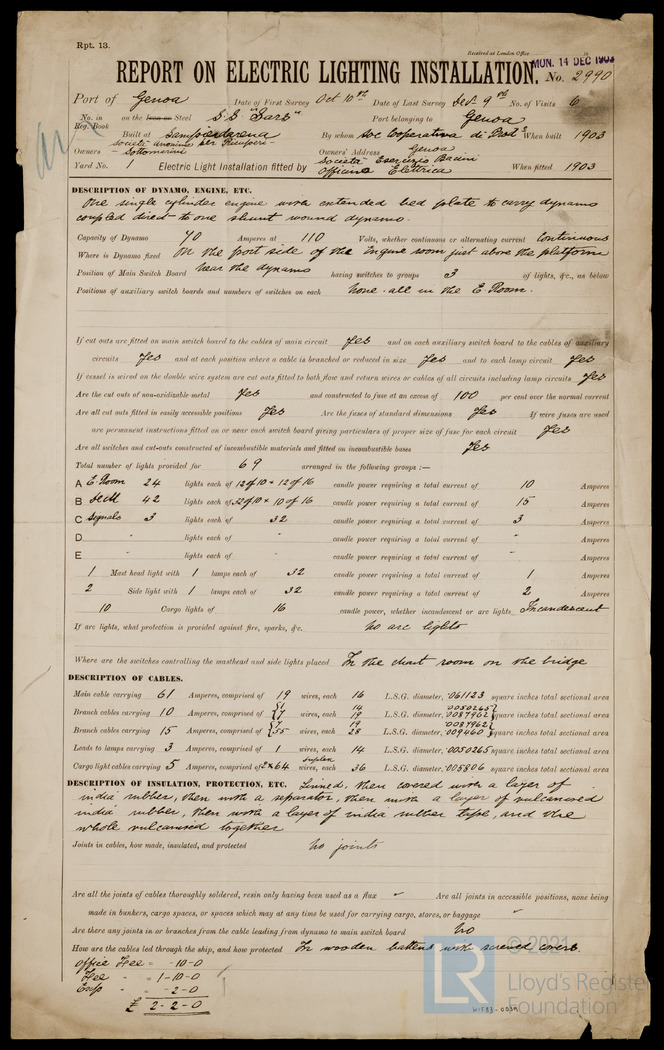 Rpt. 13.
Received at London Office
MON. 14 DEC 1903
REPORT ON ELECTRIC LIGHTING INSTALLATION. No. 2990
Port of Genoa Date of First Survey Oct 10th Date of Last Survey Dec. 9th No. of Visits 6
No. in Reg. Book on the Iron or Steel S.S "Bars" Port belonging to Genoa
Built at Sampierdarena By whom Soc Cooperativa di Prod. When built 1903
Owners Società anonima per Owners' Address Genoa
Yard No. Electric Light Installation fitted by Società Esercizio Bacini Officina Elettrica When fitted 1903
DESCRIPTION OF DYNAMO, ENGINE, ETC.
One single cylinder engine with extended bed plate to carry dynamo
coupled direct to one shunt wound dynamo.
Capacity of Dynamo 70 Amperes at 110 Volts, whether continuous or alternating current Continuous
Where is Dynamo fixed On the port side of the Engine room just above the platform
Position of Main Switch Board near the dynamo having switches to groups 3 of lights, &c., as below
Positions of auxiliary switch boards and numbers of switches on each None. all in the E. Room.
If cut outs are fitted on main switch board to the cables of main circuit Yes and on each auxiliary switch board to the cables of auxiliary
circuits Yes and at each position where a cable is branched or reduced in size Yes and to each lamp circuit Yes
If vessel is wired on the double wire system are cut outs fitted to both flow and return wires or cables of all circuits including lamp circuits Yes
Are the cut outs of non-oxidizable metal Yes and constructed to fuse at an excess of 100 per cent over the normal current
Are all cut outs fitted in easily accessible positions Yes Are the fuses of standard dimensions Yes If wire fuses are used
are permanent instructions fitted on or near each switch board giving particulars of proper size of fuse for each circuit Yes
Are all switches and cut-outs constructed of incombustible materials and fitted on incombustible bases Yes
Total number of lights provided for 69 arranged in the following groups :—
A E. Room 24 lights each of 12 of 10 + 12 of 16 candle power requiring a total current of 10 Amperes
B Deck 42 lights each of 32 of 10 + 10 of 16 candle power requiring a total current of 15 Amperes
C Signals 3 lights each of 32 candle power requiring a total current of 3 Amperes
D " lights each of " candle power requiring a total current of " Amperes
E lights each of " candle power requiring a total current of " Amperes
1 Mast head light with 1 lamps each of 32 candle power requiring a total current of 1 Amperes
2 Side light with 1 lamps each of 32 candle power requiring a total current of 2 Amperes
10 Cargo lights of 16 candle power, whether incandescent or arc lights Incandescent
If arc lights, what protection is provided against fire, sparks, &c. No arc lights
Where are the switches controlling the masthead and side lights placed In the chart room on the bridge
DESCRIPTION OF CABLES.
Main cable carrying 61 Amperes, comprised of 19 wires, each 16 L.S.G. diameter, .061123 square inches total sectional area
Branch cables carrying 10 Amperes, comprised of {1 7 wires, each 14 19 L.S.G. diameter, .0050265 .0087962} square inches total sectional area
Branch cables carrying 15 Amperes, comprised of {7 35 wires, each 19 28 L.S.G. diameter, .0087962 .009460} square inches total sectional area
Leads to lamps carrying 3 Amperes, comprised of 1 wires, each 14 L.S.G. diameter, .0050265 square inches total sectional area
Cargo light cables carrying 5 Amperes, comprised of 2x64 duplex wires, each 36 L.S.G. diameter, .005806 square inches total sectional area
DESCRIPTION OF INSULATION, PROTECTION, ETC. Tinned, then covered with a layer of
india rubber, then with a separator, then with a layer of vulcanised
india rubber, then with a layer of india rubber tape, and the
whole vulcanised together
Joints in cables, how made, insulated, and protected No joints
Are all the joints of cables thoroughly soldered, resin only having been used as a flux " Are all joints in accessible positions, none being
made in bunkers, cargo spaces, or spaces which may at any time be used for carrying cargo, stores, or baggage "
Are there any joints in or branches from the cable leading from dynamo to main switch board No
How are the cables led through the ship, and how protected In wooden battens with screwed covers.
Office Fee = -10-0
Fee - 1-10-0
Exp - -2-0
£ 2-2-0
© 2021
LR Lloyd's Register
Foundation
W1F83-0039